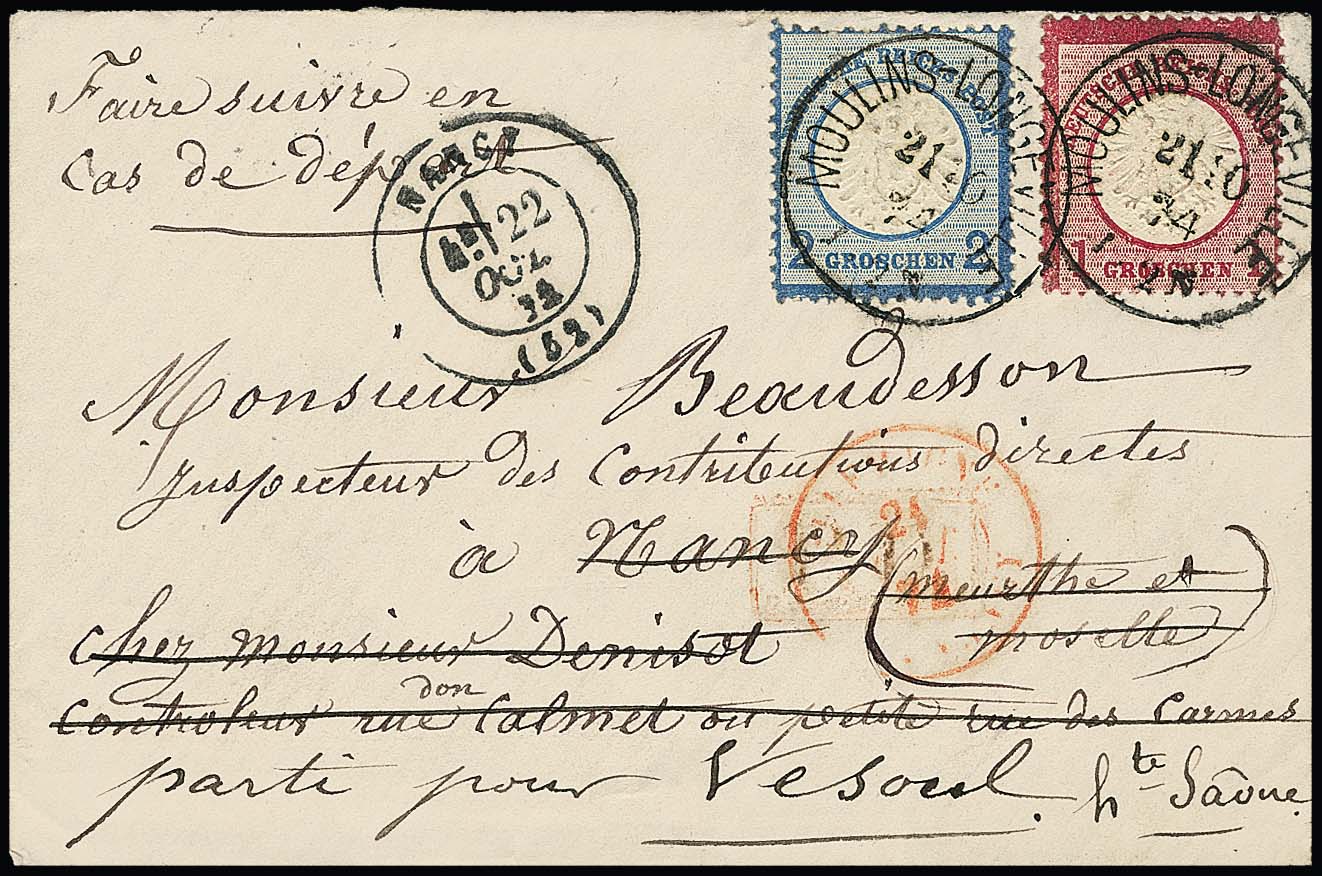 Faire suivre en
cas de départ
NANCY
22
OCT.
74
(52)
REICHS-POST
2 GROSCHEN 2
MOULINS-LONGEVILLE
21 10
74
1 GROSCHEN
MOULINS-LONGEVILLE
21 10
74
Monsieur Beaudesson
Inspecteur des Contributions directes
à Nancy (meurthe et
moselle)
21
74
chez monsieur Denisot
don
controleur rue Calmet ou petite rue des Carmes
parti pour Vesoul. hte Saône.